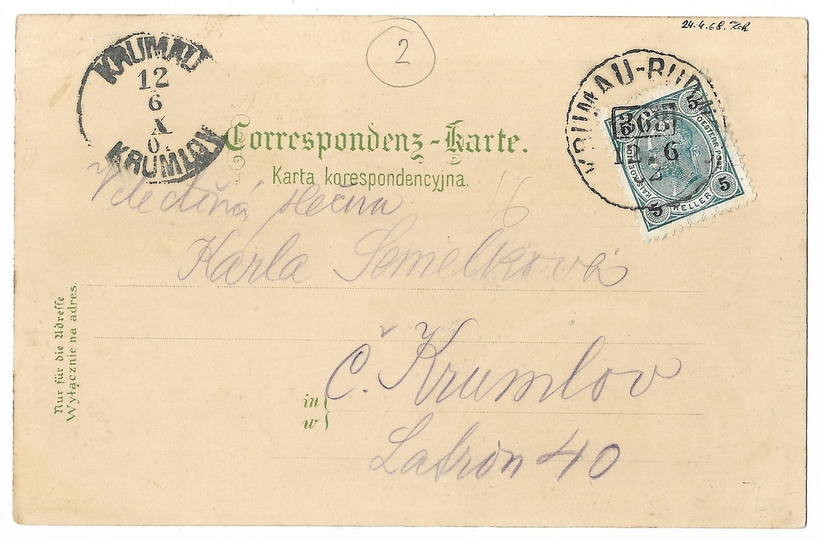 24.4.68.
2
KRUMAU
12
6
X
0
KRUMLOV
KRUMAU-BUD
368
12 6
2
5
5
5
HELLER
Correspondenz-Karte.
Karta korespondencyjna.
Velectěná slečna
16
Karla Semelková
Č. Krumlov
in
w
Latrán 40
Nur für die Adresse
Wyłącznie na adres.